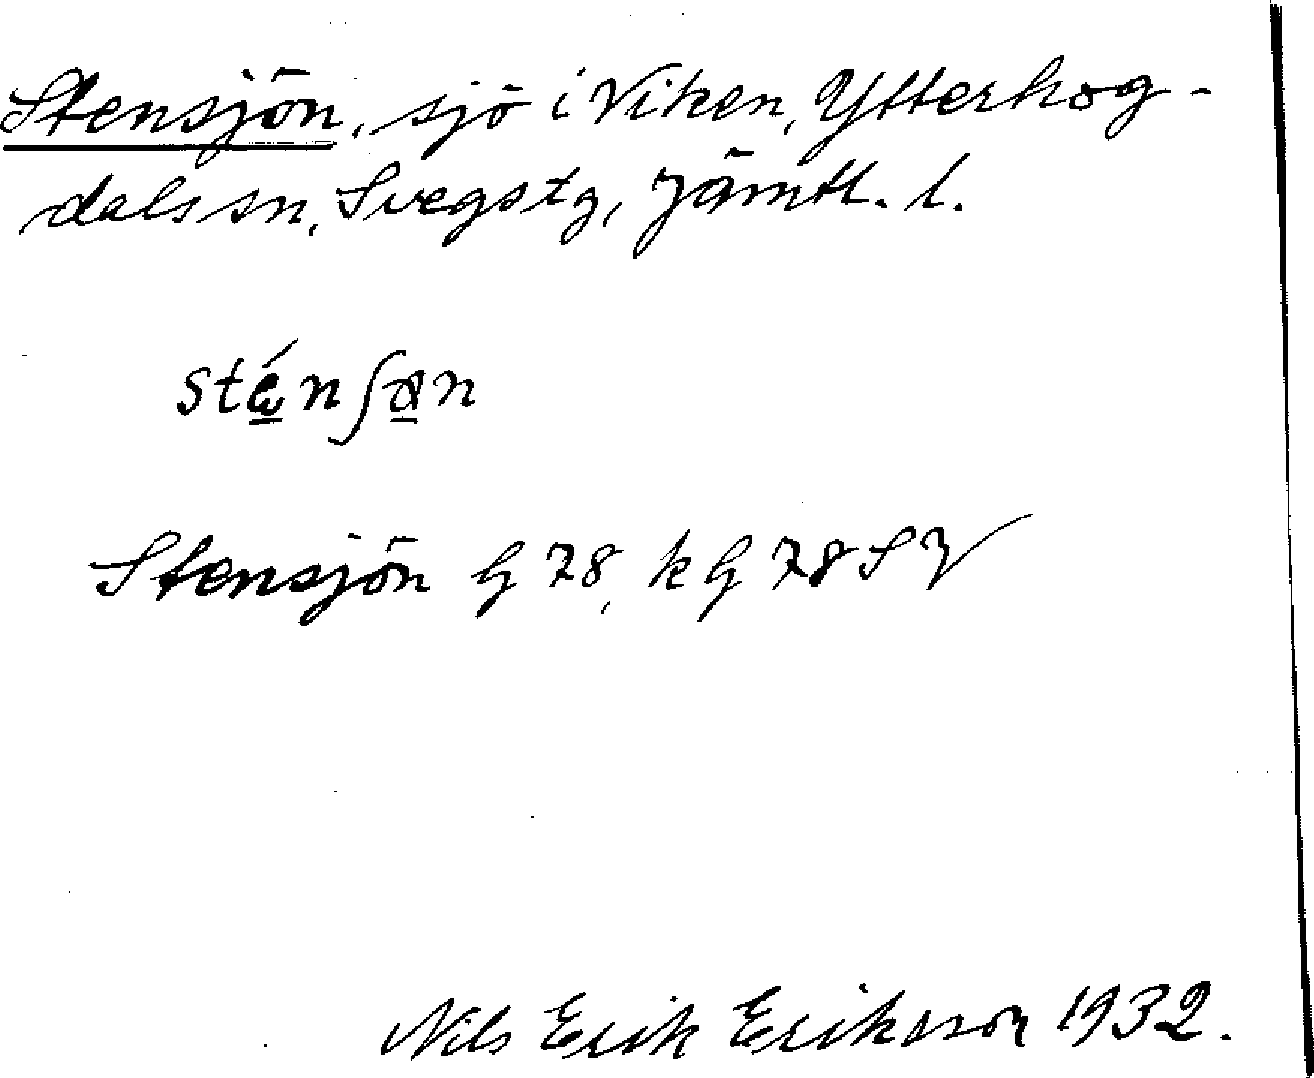 Stensjön, sjö i Viken, Ytterhog-
dals sn, Svegs tg, Jämtl. l.
Stensjön G 78, kG 78 S V
Nils Erik Eriksson 1932.